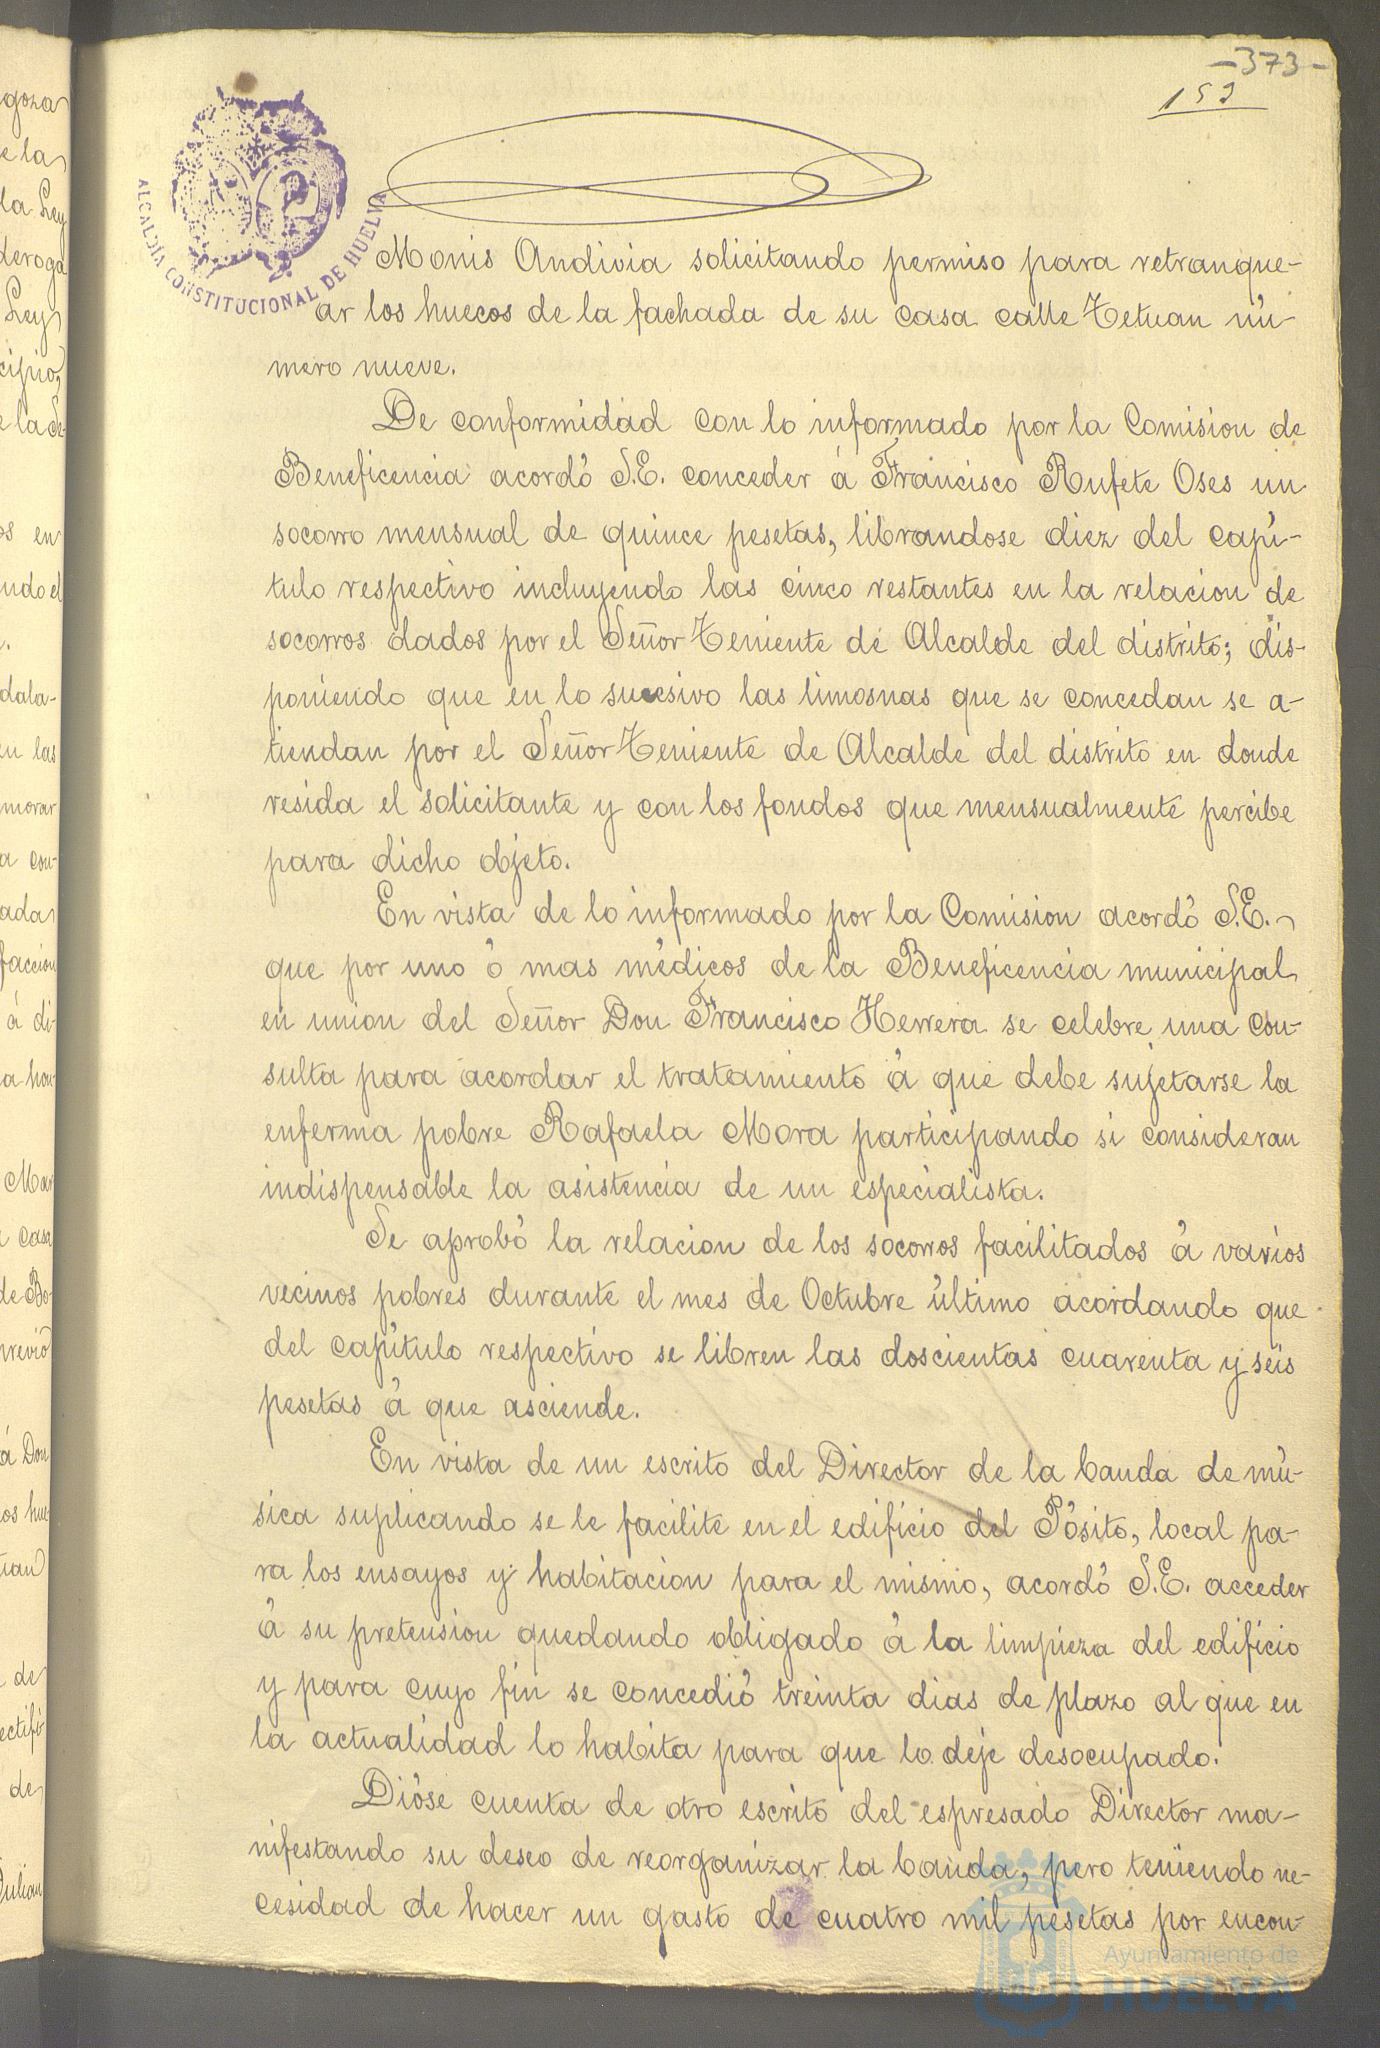 -373-
153
ALCALDÍA CONSTITUCIONAL DE HUELVA
Monis Andivia solicitando permiso para retranque-
ar los huecos de la fachada de su casa calle Tetuan nú-
mero nueve.
De conformidad con lo informado por la Comision de
Beneficencia acordó S.E. conceder á Francisco Rufete Oses un
socorro mensual de quince pesetas, librandose diez del capí-
tulo respectivo incluyendo las cinco restantes en la relacion de
socorros dados por el Señor Teniente de Alcalde del distrito; dis-
poniendo que en lo sucesivo las limosnas que se concedan se a-
tiendan por el Señor Teniente de Alcalde del distrito en donde
resida el solicitante y con los fondos que mensualmente percibe
para dicho objeto.
En vista de lo informado por la Comision acordó S.E.
que por uno ó mas médicos de la Beneficencia municipal
en union del Señor Don Francisco Herrera se celebre una con-
sulta para acordar el tratamiento á que debe sujetarse la
enferma pobre Rafaela Mora participando si consideran
indispensable la asistencia de un especialista.
Se aprobó la relacion de los socorros facilitados á varios
vecinos pobres durante el mes de Octubre último acordando que
del capítulo respectivo se libren las doscientas cuarenta y seis
pesetas á que asciende.
En vista de un escrito del Director de la banda de mú-
sica suplicando se le facilite en el edificio del Pósito, local pa-
ra los ensayos y habitacion para el mismo, acordó S.E. acceder
á su pretension quedando obligado á la limpieza del edificio
y para cuyo fin se concedió treinta dias de plazo al que en
la actualidad lo habita para que lo deje desocupado.
Dióse cuenta de otro escrito del espresado Director ma-
nifestando su deseo de reorganizar la banda, pero teniendo ne-
cesidad de hacer un gasto de cuatro mil pesetas por encon-
Ayuntamiento de
HUELVA